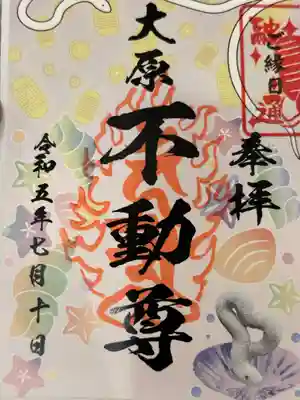 奉拝
大原
不動尊
令和五年七月十日
縁日
通